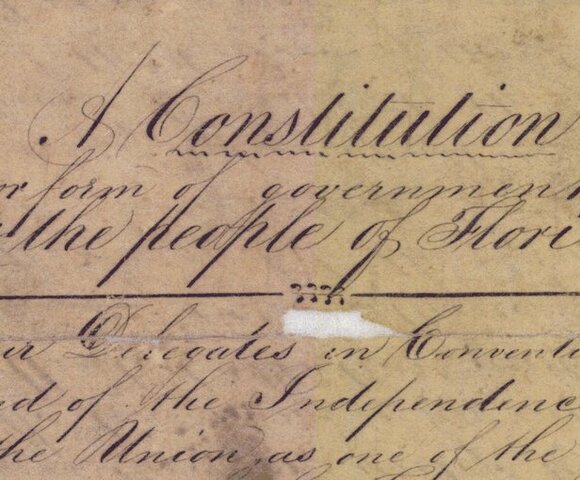 A Constitution
or form of government
the people of Flori
our Delegates in Conventi
nd of the Independenc
the Union, as one of the